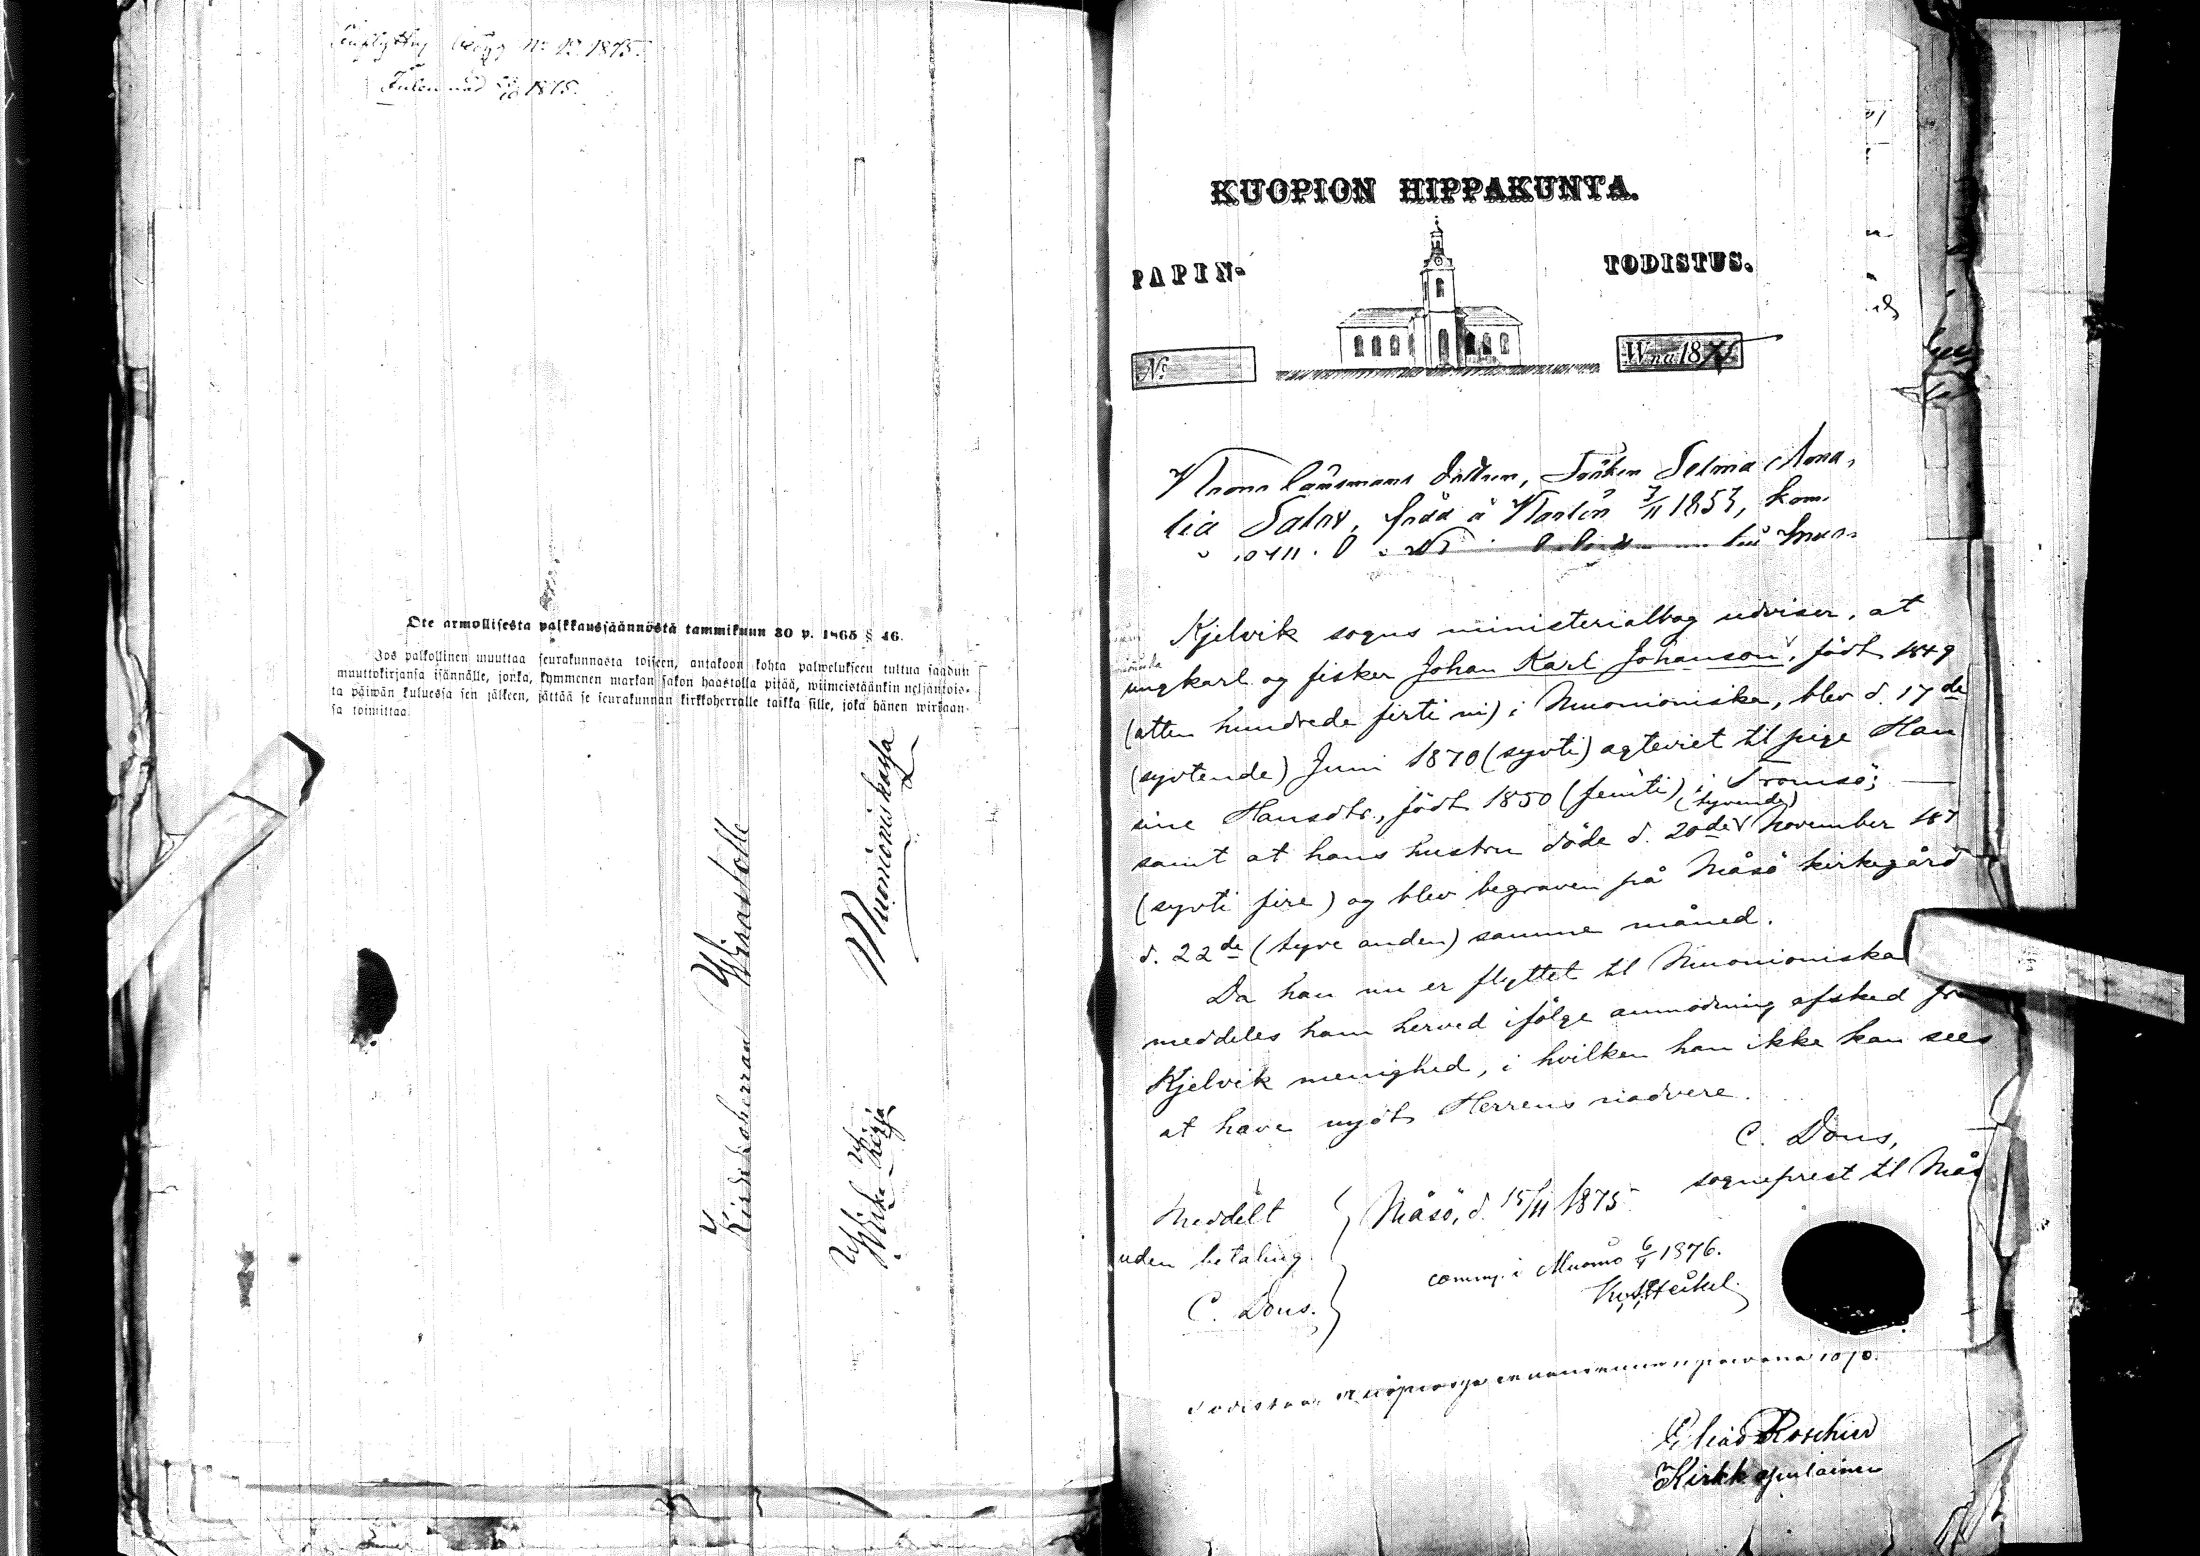 1875.
1875.
Ote armollisesta palkkaussäännöstä tammikuun 30 p. 1865 § 46.
Jos palkollinen muuttaa seurakunnasta toiseen, antakoon kohta palwelukseen tultua saadun
muuttokirjansa isännälle, jonka, kymmenen markan sakon haastolla pitää, wiimeistäänkin neljäntois-
ta päiwän kuluessa sen jälkeen, jättää se seurakunnan kirkkoherralle taikka sille, joka hänen wirkaan-
sa toimittaa.
Kirkkoherran Wirastolle
Muonioniskassa
KUOPION HIPPAKUNTA.
PAPIN-
TODISTUS.
No
Wna 18
Selma Ama-
lia 1853, kom.
Kjelvik sogns ministerialbog udviser, at
ungkarl og fisker Johan Karl Johanson, født 1849
(atten hundrede firti ni) i Muonioniska, blev d. 17de
(syttende) Juni 1870 (sytti) ægteviet til pige Han
sine Hansdtr., födt 1850 (femti) i Tromsö;
samt at hans hustru döde d. 20de (tyvende) November 187
(sytti fire) og blev begraven på Måsö kirkegård
d. 22de (tyve anden) samme måned.
Da han nu er flyttet til Muonioniska
meddeles ham herved ifölge anmodning afsked fra
Kjelvik menighed, i hvilken han ikke kan sees
at have nydt Herrens nadvere.
C. Dons,
sogneprest til Mås
Meddelt
uden betaling
C. Dons.
Måsö, d. 15/11 1875
i Muonio 1876.
Elias Roschier
Kirkk apulainen